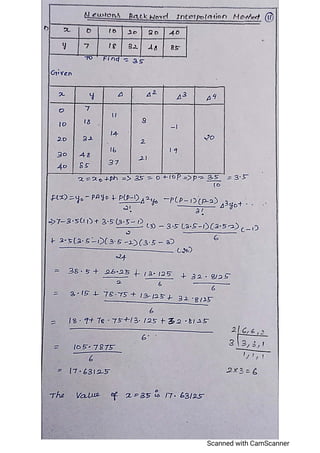 Newtons BackWord Interpolation Method 11
x 0 10 20 30 40
y 7 18 32 48 85
To Find = 35
Given
x y Δ Δ² Δ3 Δ4
0 7
11
10 18 3
14 -1
20 32 2 20
16 19
30 48 21
37
40 85
x = x₀+ph => 35 = 0+10P => p = 35/10 = 3.5
f(x) = y₀ - PΔy₀ + p(p-1)/2! Δ²y₀ - p(p-1)(p-2)/3! Δ³y₀ + ..
=> 7-3.5(11) + 3.5(3.5-1)/2 (3) - 3.5(3.5-1)(3.5-2)/6 (-1)
+ 3.5(3.5-1)(3.5-2)(3.5-3)/24 (20)
= 38.5 + 26.25/2 + 13.125/6 + 32.8125/6
= 3.15 + 78.75 + 13.125 + 32.8125/6
= 18.9 + 78.75 + 13.125 + 32.8125/6
= 105.7875/6
2 | 6,6,2
3 | 3,3,1
1,1,1
= 17.63125
2x3=6
The Value of x=35 is 17.63125
Scanned with CamScanner